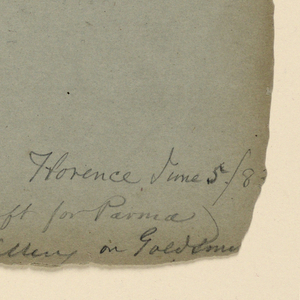 Florence June 5/8
ft for Parma)
on Goldsmi